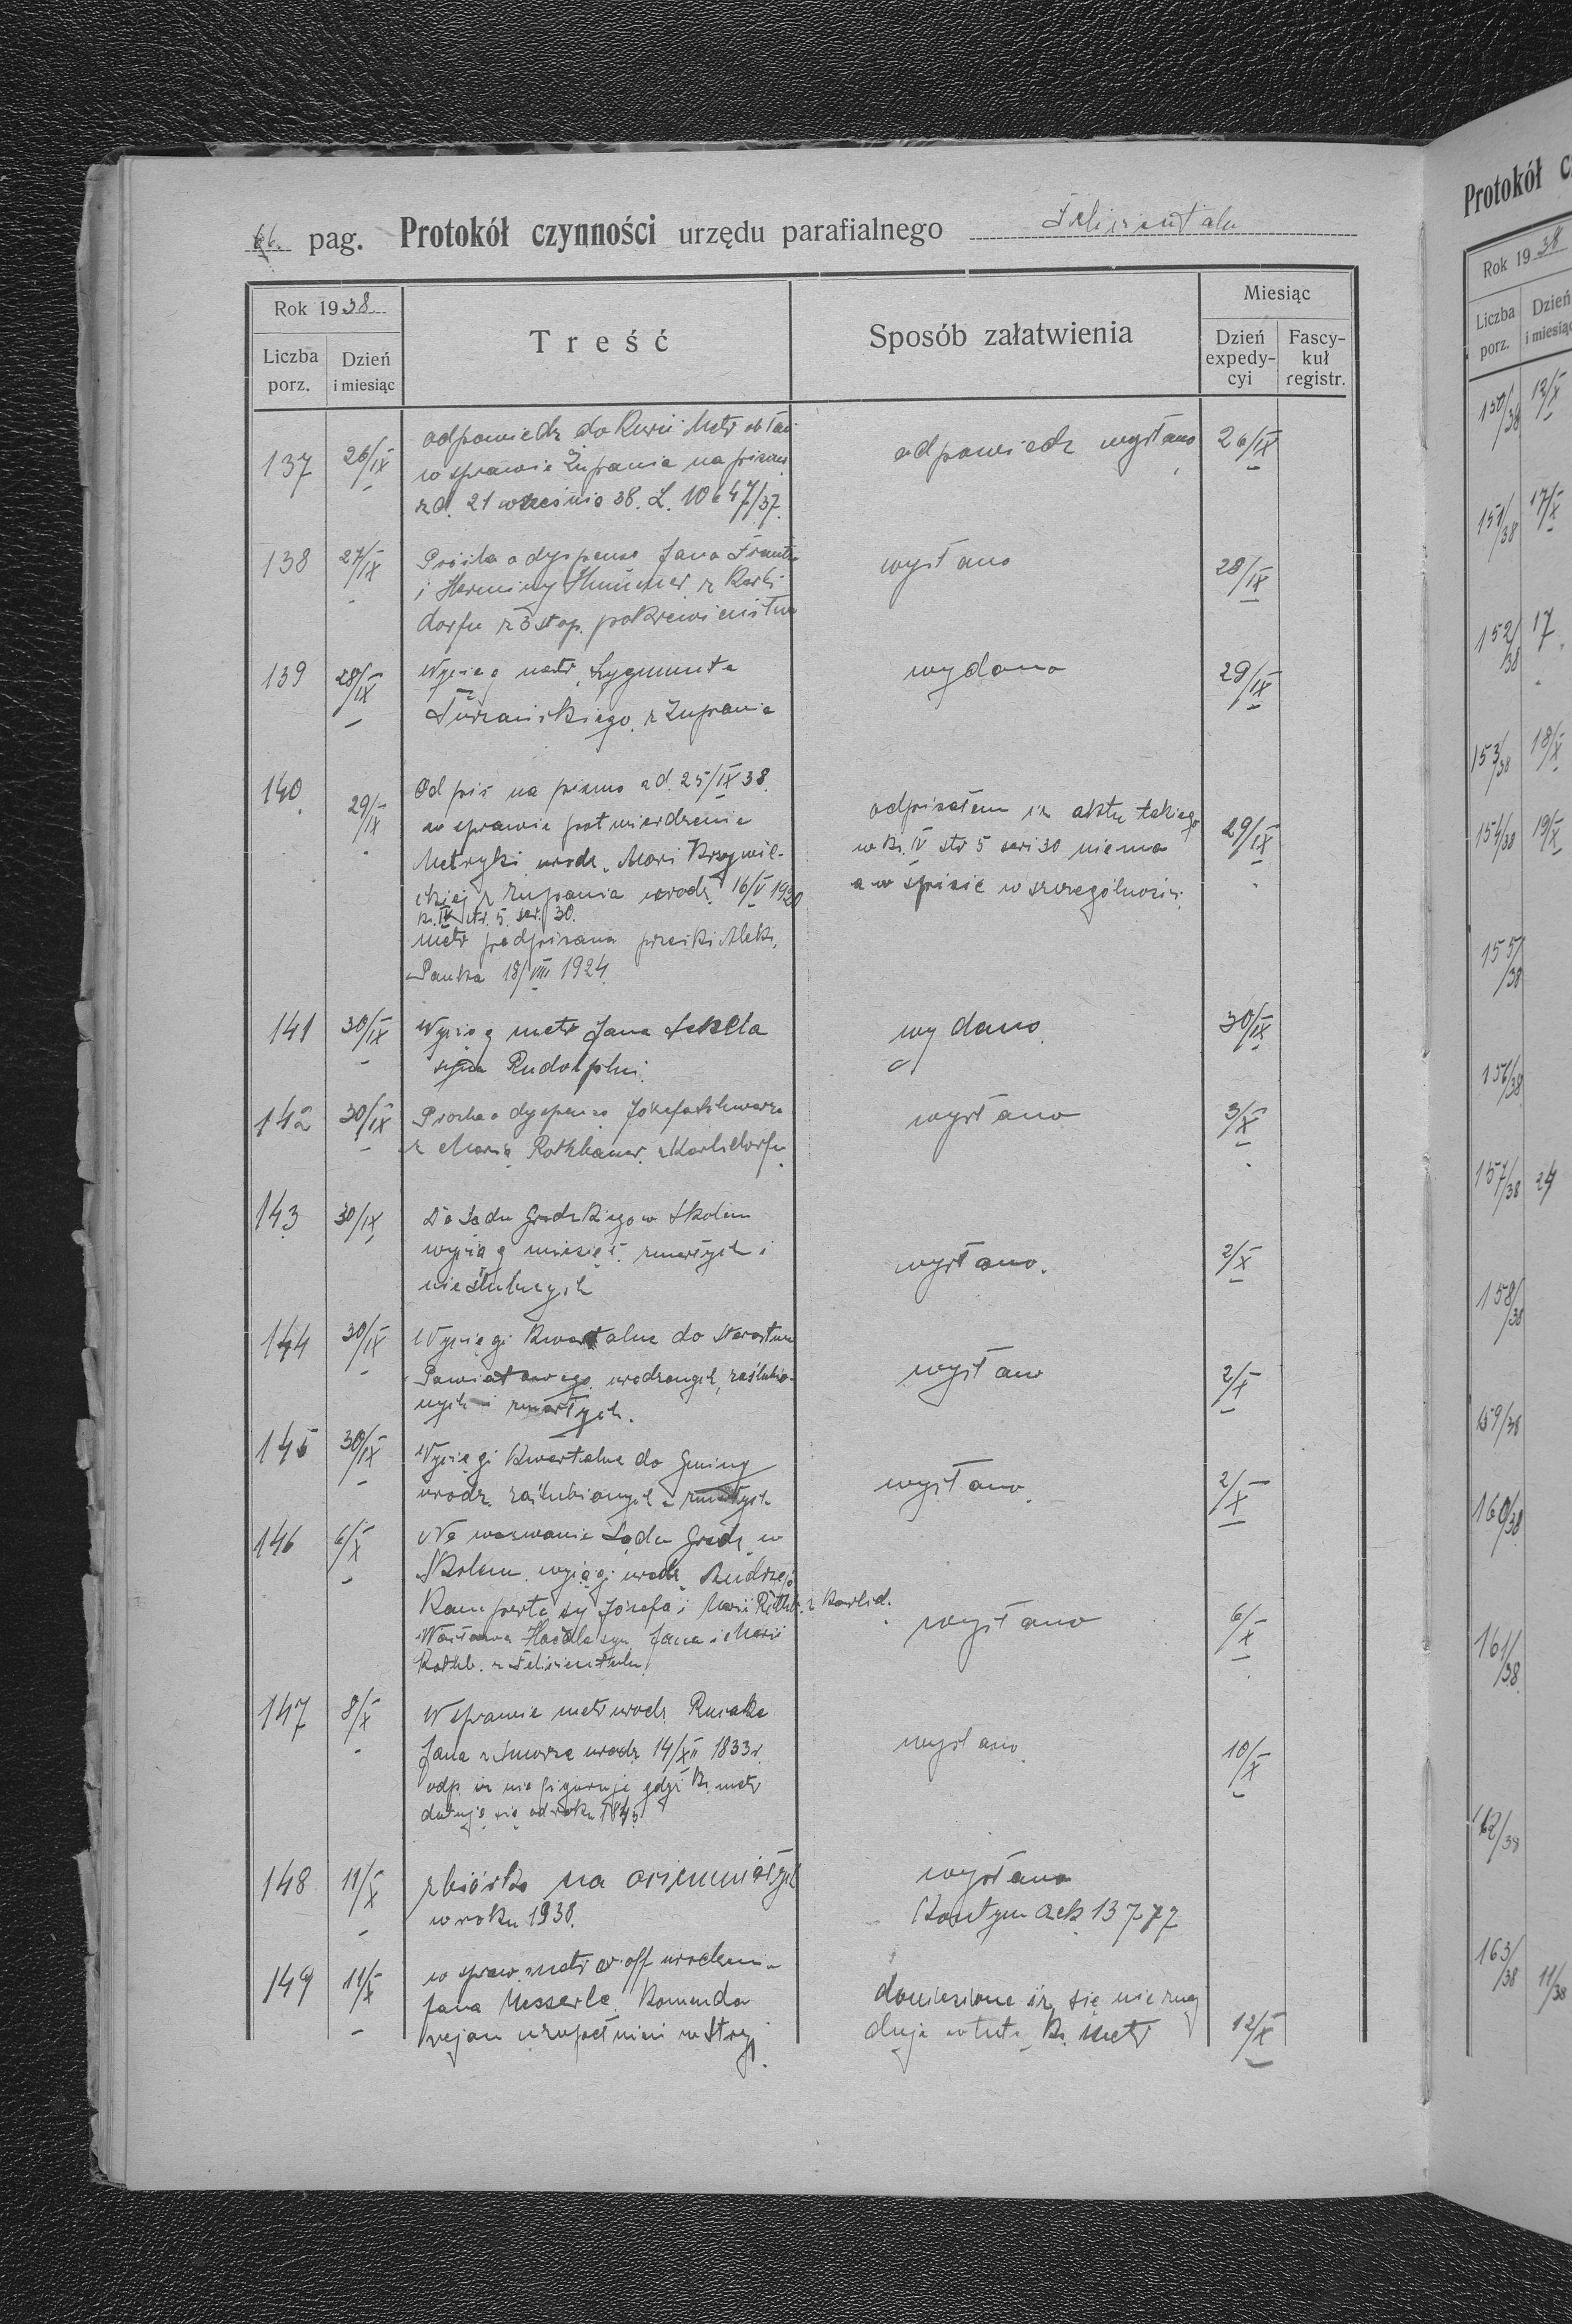 66. pag. Protokół czynności urzędu parafialnego Felizientalu
Rok 1938
Liczba porz.
Dzień i miesiąc
Treść
Sposób załatwienia
Miesiąc
Dzień expedycyi
Fascykuł registr.
137 26/IX odpowiedz do Kurii Metr ob łać odpowiedz wysłano 26/IX
w sprawie Żupania na pismo
z d. 21 września 38. L. 10647/37.
138 27/IX Prośba o dyspensę Jana wysłano 28/IX
i Herminy z Karls
dorfu z 3 stop. pokrewieństwa
139 28/IX Wyciąg metr. Zygmunta wydano 29/IX
Turzańskiego z Żupania
140. 29/IX Odpis na pismo z d. 25/IX 38.
w sprawie potwierdzenia odpisałem iż aktu takiego 29/IX
Metryki urodz. Mari Krzywic- w ks. IV str 5 seri 30 niema
ckiej z Żupania urodz. 16/V 1920 a w spisie w szczególności
ks. IV str. 5 ser. 30.
metr podpisana przez ks Alek.
Panka 18/VIII 1924.
141 30/IX Wyciąg metr Jana Sekela wydano. 30/IX
syna Rudolphi.
142 30/IX Prozba o dyspensę Józefa Schwarza wysłano 3/X
z Marią Rothbauer z Karlsdorfu
143 30/IX Do Sądu Grodzkiego w Skolem
wyciąg miesięc. zmarłych i wysłano. 2/X
nieślubnych
144 30/IX Wyciągi kwartalne do Starostwa
Powiatowego urodzonych, zaślubio- wysłano 2/X
nych i zmarłych.
145 30/IX Wyciągi kwartalne do Gminy
urodz. zaślubionych i zmarłych wysłano. 2/X
146 6/X Na wezwanie Sądu Grodz. w
Skolem wyciągi urodz. Andrzeja
Kamperta sy Józefa i Marii Rothb. z Karlsd.
Wacława syn. Jana i Marii wysłano 6/X
Rothb. z Felizientalu
147 8/X W sprawie metr urodz. Rusaka
Jana z Smorza urodz 14/XII 1833 r. wysłano. 10/X
odp. iż nie figuruje gdyż ks. metr
datuję się od roku 1843
148 11/X zbiórka na ociemniałych wysłano
w roku 1938. Kontyn czek 13777
149 11/X w spraw. metr ex off urodzenia
Jana Messerle Komenda doniesione iż się nie znaj
rejon uzupełnień w Stryj. duje w tut. ks. metr 12/X
Protokół c
Rok 1938
Liczba porz.
Dzień i miesiąc
150/38 12/X
151/38 17/X
152/38 17
153/38 18/X
154/38 19/X
155/38
156/38
157/38 24
158/38
159/38
160/38
161/38
162/38
163/38 11/38